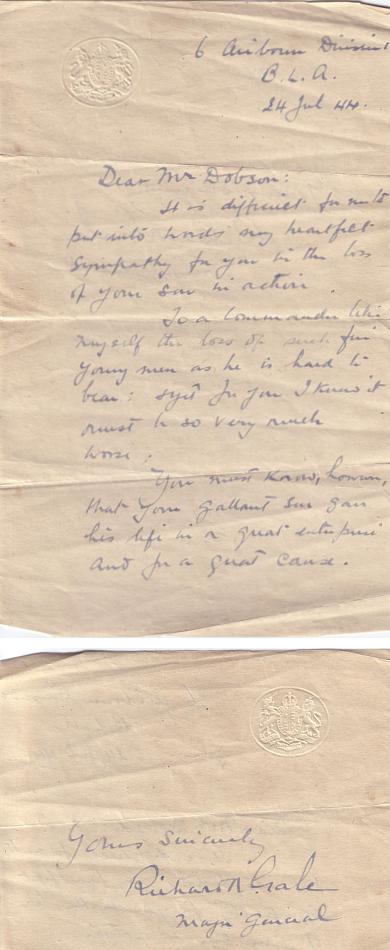 6 Airborne Division
B.L.A.
24 Jul 44.
Dear Mr Dobson:
It is difficult for me to
put into words my heartfelt
sympathy for you in the loss
of your son in action.
To a Commander like
myself the loss of such fine
young men as he is hard to
bear: yet for you I know it
must be so very much
worse.
You must know, however,
that your gallant son gave
his life in a great enterprise
and for a great cause.
Yours sincerely
Richard N. Gale
Major General